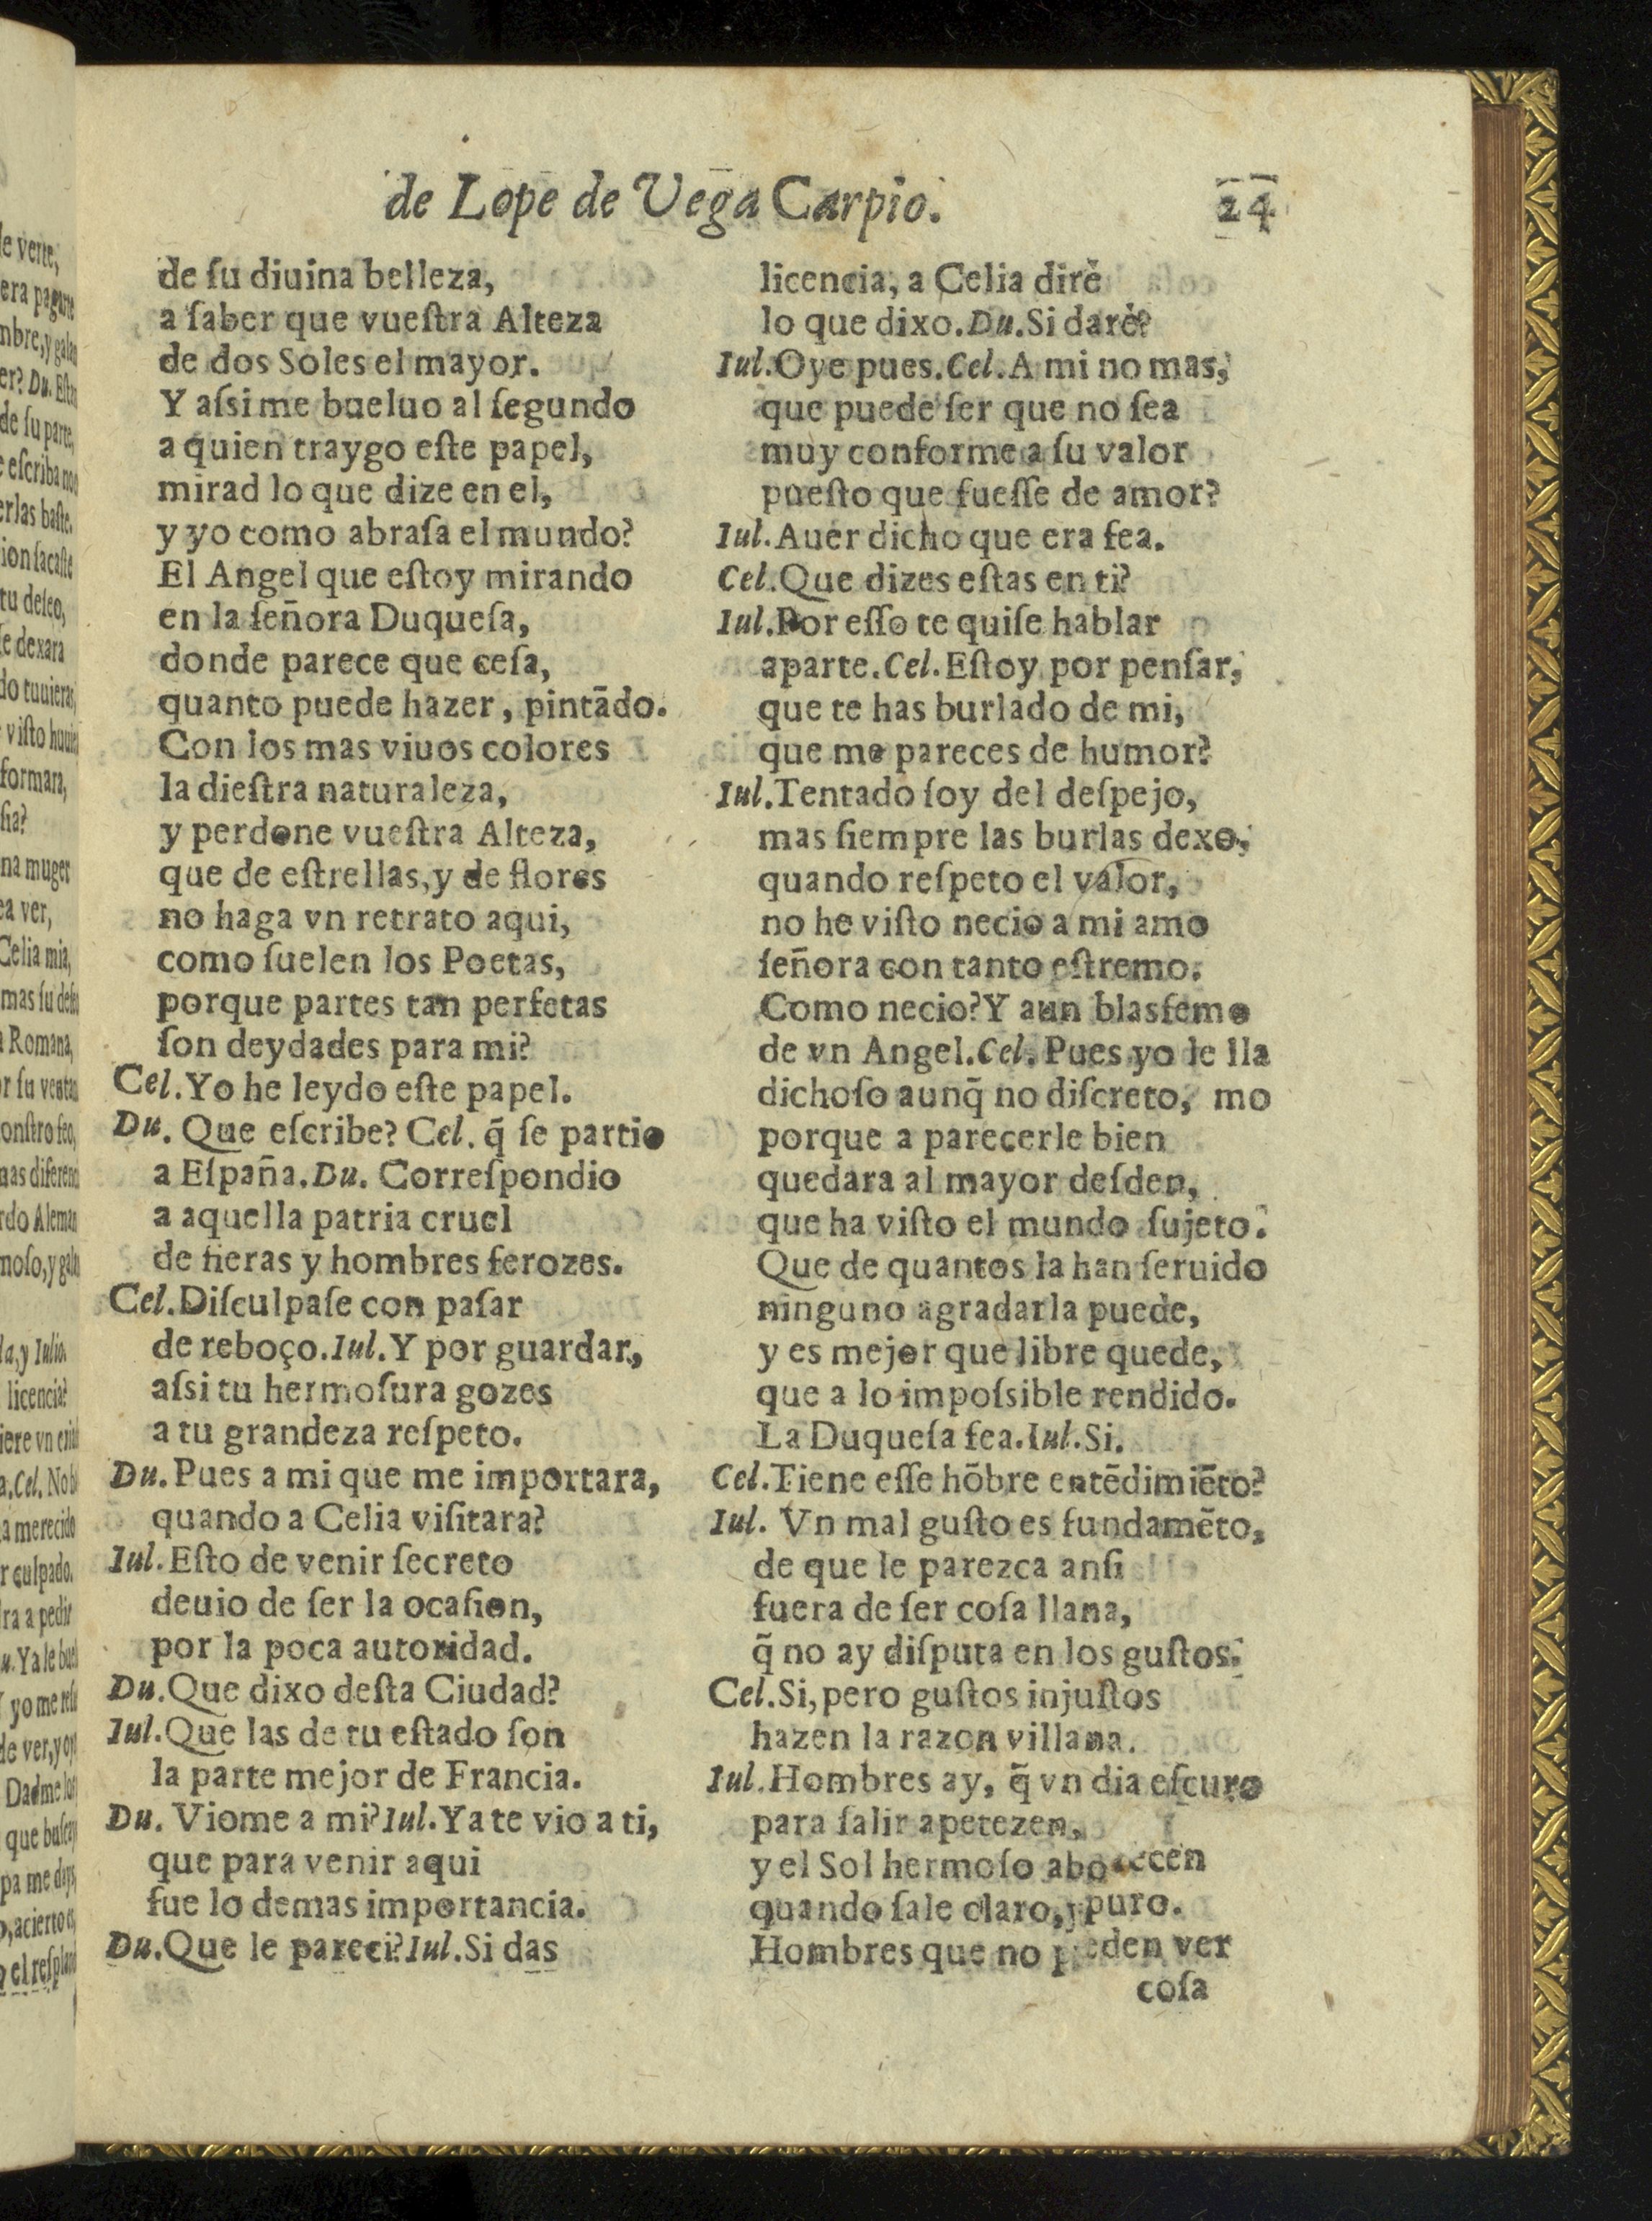 de Lope de Vega Carpio.
24
de ſu diuina belleza,
a ſaber que vueſtra Alteza
de dos Soles el mayor.
Y aſsi me bueluo al ſegundo
a quien traygo eſte papel,
mirad lo que dize en el,
y yo como abraſa el mundo?
El Angel que eſtoy mirando
en la ſeñora Duqueſa,
donde parece que ceſa,
quanto puede hazer, pintādo.
Con los mas viuos colores
la dieſtra naturaleza,
y perdone vueſtra Alteza,
que de eſtrellas, y de flores
no haga vn retrato aqui,
como ſuelen los Poetas,
porque partes tan perfetas
ſon deydades para mi?
Cel. Yo he leydo eſte papel.
Du. Que eſcribe? Cel. q̃ ſe partio
a Eſpaña. Du. Correſpondio
a aquella patria cruel
de fieras y hombres ferozes.
Cel. Diſculpaſe con paſar
de reboço. Iul. Y por guardar,
aſsi tu hermoſura gozes
a tu grandeza reſpeto.
Du. Pues a mi que me importara,
quando a Celia viſitara?
Iul. Eſto de venir ſecreto
deuio de ſer la ocaſion,
por la poca autoridad.
Du. Que dixo deſta Ciudad?
Iul. Que las de tu eſtado ſon
la parte mejor de Francia.
Du. Viome a mi? Iul. Ya te vio a ti,
que para venir aqui
fue lo demas importancia.
Du. Que le pareci? Iul. Si das
licencia, a Celia dirè
lo que dixo. Du. Si darè?
Iul. Oye pues. Cel. A mi no mas,
que puede ſer que no ſea
muy conforme a ſu valor
pueſto que fueſſe de amor?
Iul. Auer dicho que era fea.
Cel. Que dizes eſtas en ti?
Iul. Por eſſo te quiſe hablar
aparte. Cel. Eſtoy por penſar,
que te has burlado de mi,
que me pareces de humor?
Iul. Tentado ſoy del deſpejo,
mas ſiempre las burlas dexo,
quando reſpeto el valor,
no he viſto necio a mi amo
ſeñora con tanto eſtremo.
Como necio? Y aun blasfemo
de vn Angel. Cel. Pues yo le lla
dichoſo aunq̃ no diſcreto, mo
porque a parecerle bien
quedara al mayor deſden,
que ha viſto el mundo ſujeto.
Que de quantos la han ſeruido
ninguno agradarla puede,
y es mejor que libre quede,
que a lo impoſsible rendido.
La Duqueſa fea. Iul. Si.
Cel. Tiene eſſe hōbre entēdimiēto?
Iul. Vn mal guſto es fundamēto,
de que le parezca anſi
fuera de ſer coſa llana,
q̃ no ay diſputa en los guſtos.
Cel. Si, pero guſtos injuſtos
hazen la razon villana.
Iul. Hombres ay, q̃ vn dia eſcuro
para ſalir apetezen,
y el Sol hermoſo aborrecen
quando ſale claro, y puro.
Hombres que no pueden ver
coſa